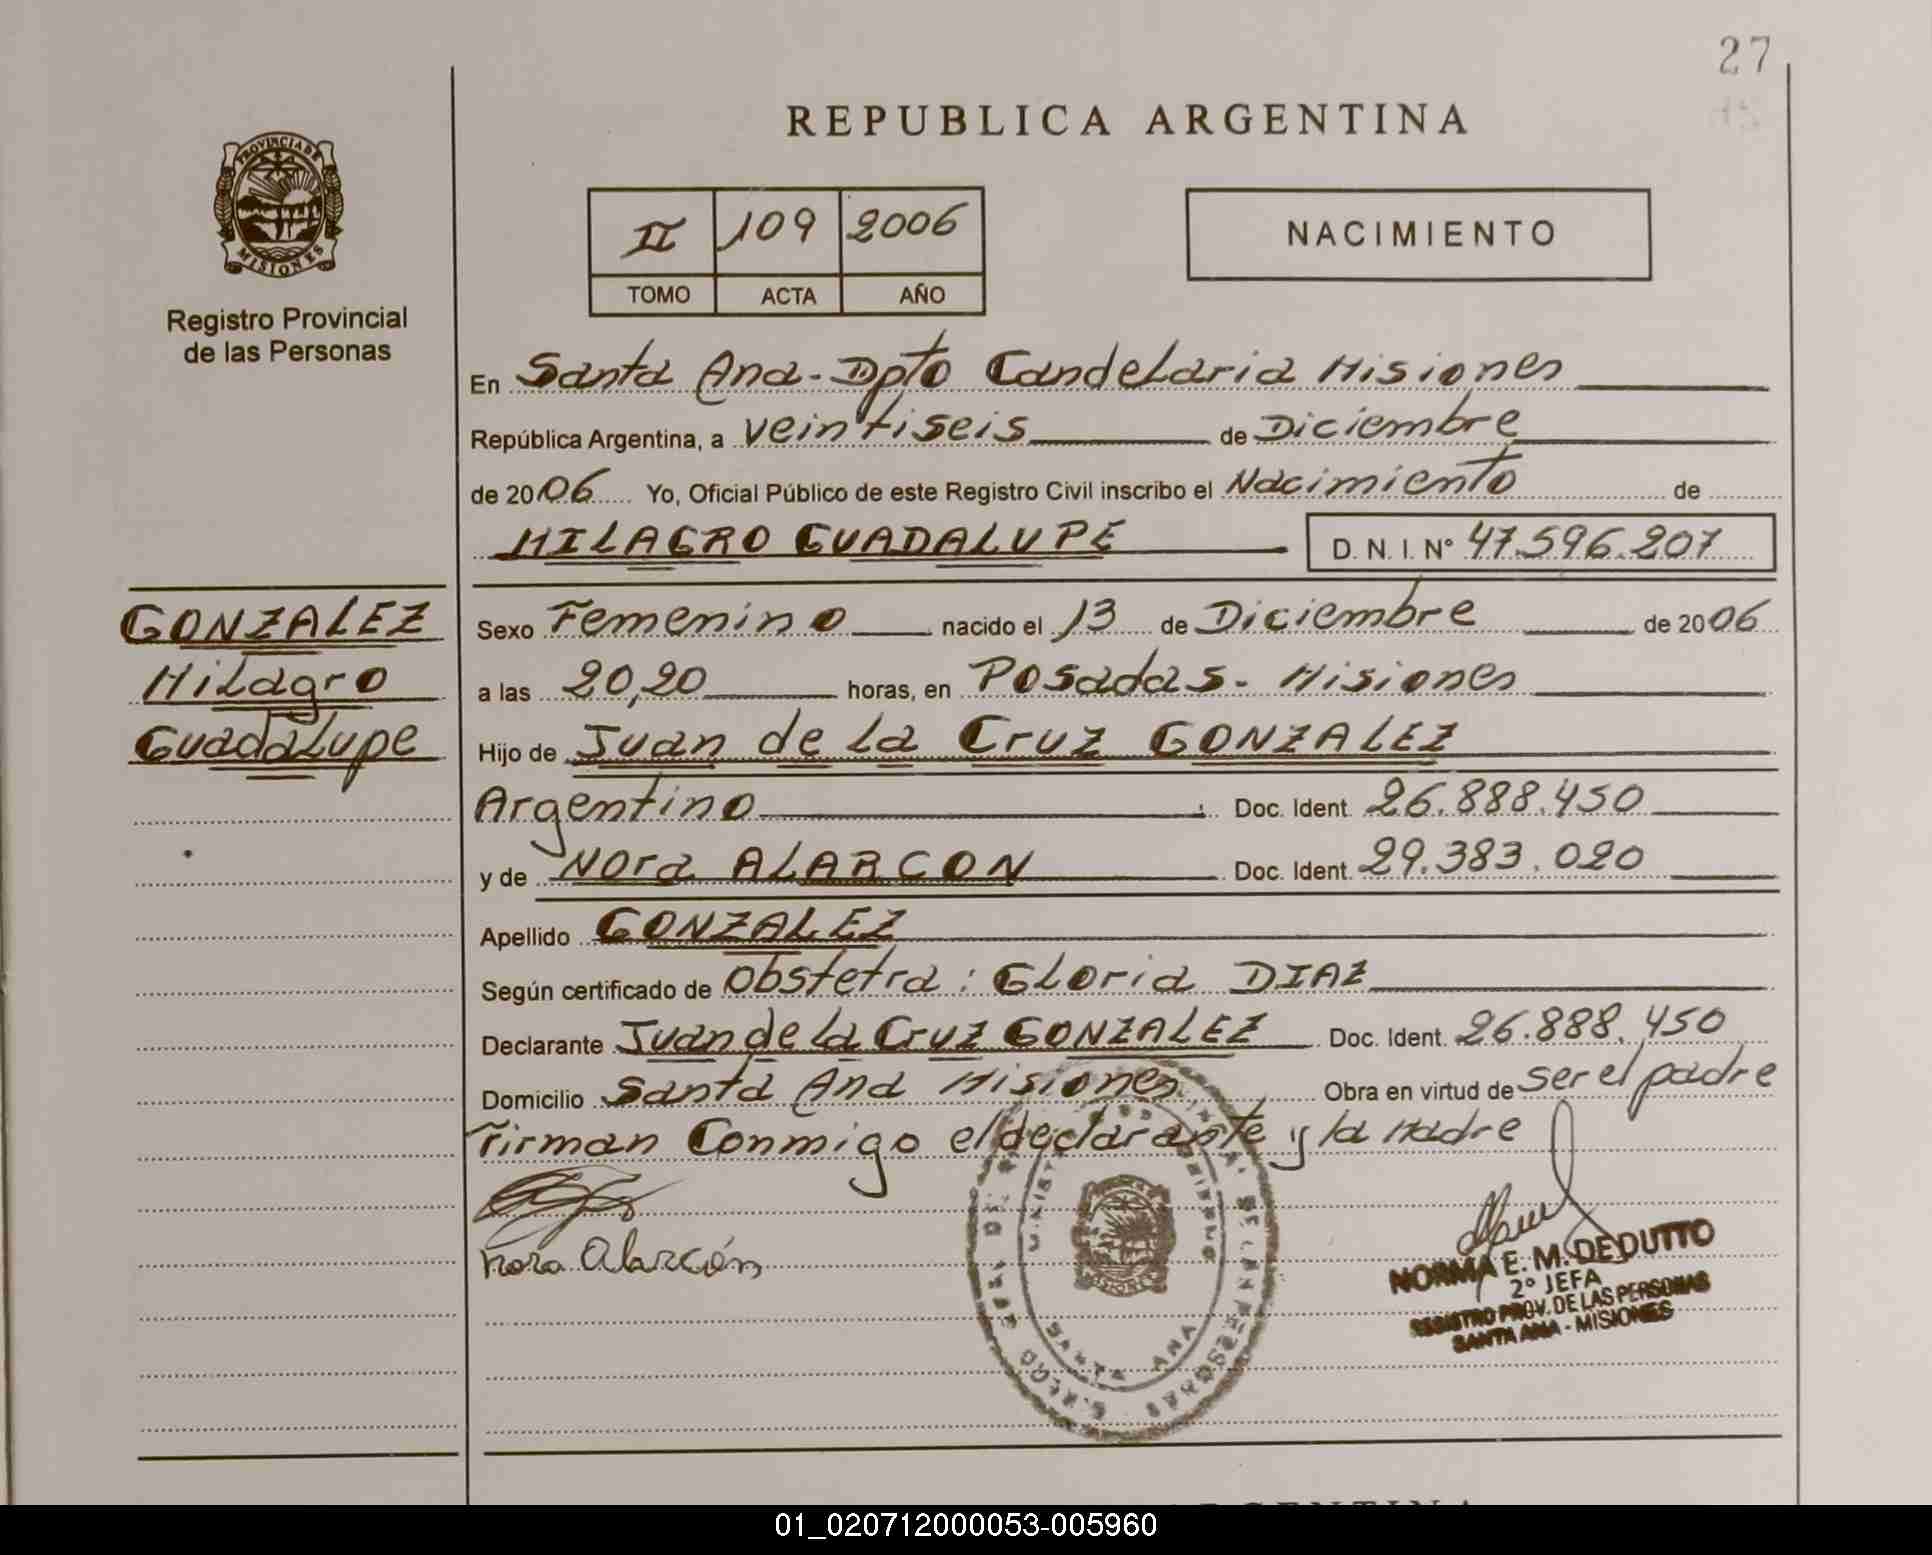 27
REPUBLICA ARGENTINA
PROVINCIA DE
MISIONES
Registro Provincial
de las Personas
II 109 2006
TOMO ACTA AÑO
NACIMIENTO
En Santa Ana - Dpto Candelaria Misiones
República Argentina, a veintiseis de Diciembre
de 2006 Yo, Oficial Público de este Registro Civil inscribo el Nacimiento de
MILAGRO GUADALUPE D. N. I. Nº 47.596.207
GONZALEZ
Milagro
Guadalupe
Sexo Femenino nacido el 13 de Diciembre de 2006
a las 20,20 horas, en Posadas - Misiones
Hijo de Juan de la Cruz GONZALEZ
Argentino Doc. Ident. 26.888.450
y de Nora ALARCON Doc. Ident. 29.383.020
Apellido GONZALEZ
Según certificado de Obstetra: Gloria DIAZ
Declarante Juan de la Cruz GONZALEZ Doc. Ident. 26.888.450
Domicilio Santa Ana Misiones Obra en virtud de ser el padre
Firman Conmigo el declarante y la Madre
Nora Alarcón
SANTA ANA
MISIONES
NORMA E. M. DE DUTTO
2º JEFA
REGISTRO PROV. DE LAS PERSONAS
SANTA ANA - MISIONES
01_020712000053-005960